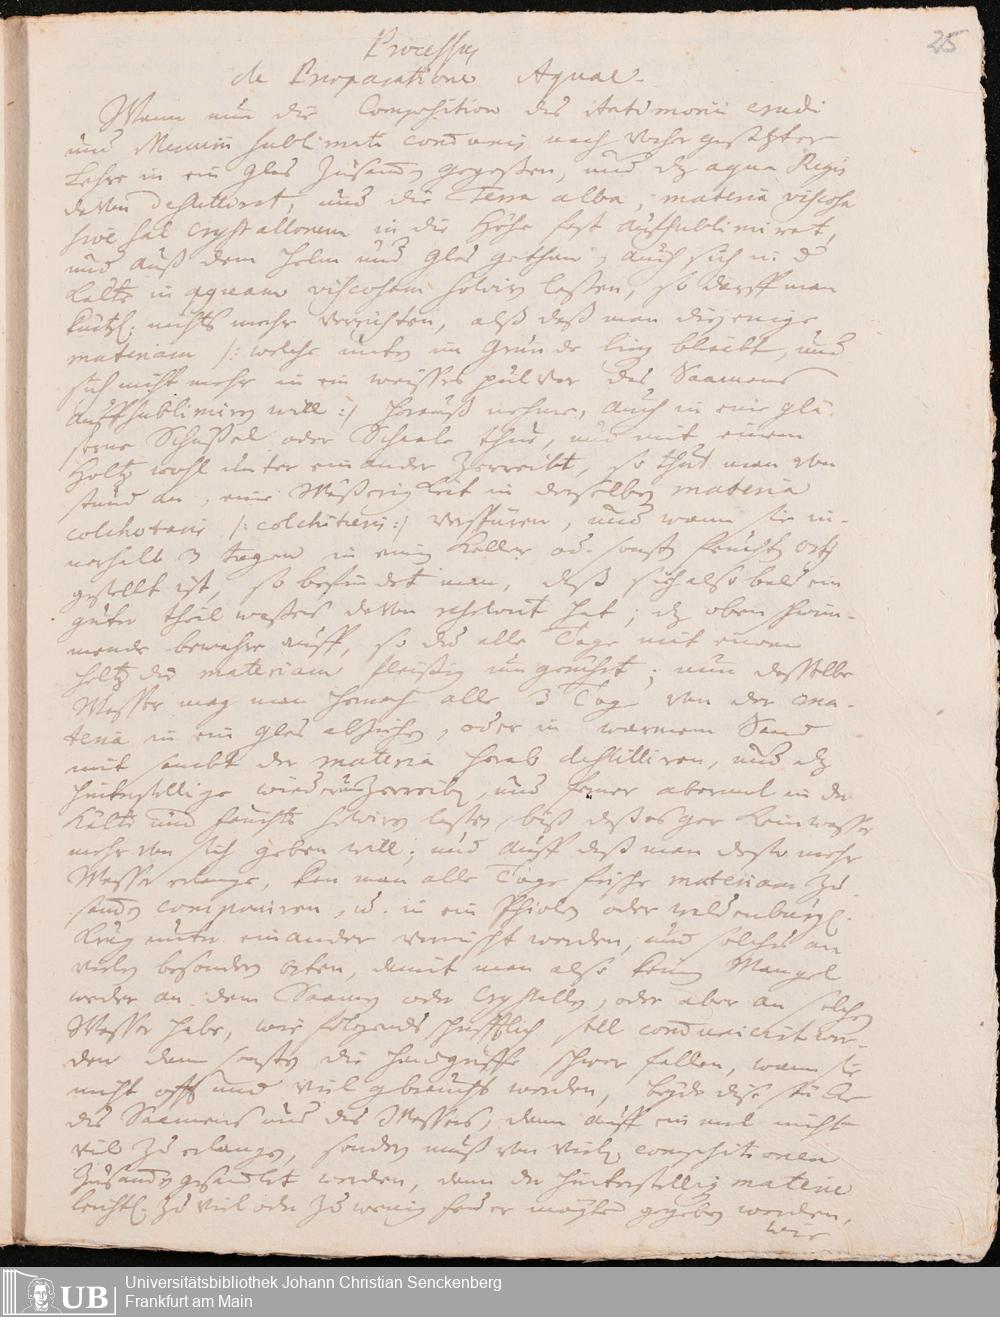 25
Processus
de Praeparatione Aquae.
Wann nun die Composition des Antimonii crudi
und Mercurii sublimati communis nach Vorhergesetzter
Lehre in ein Glas zusamen gegossen, und dz aqua Regis
davon destillirt, und die Terra alba, materia viscosa
sive sal Crystallorum in die Höhe fest aufsublimiret,
und auß dem Helm und Glas gethan, auch sich in d
Kälte in aquam viscosam solviren lassen, so darff man
kürtzl. nichts mehr verrichten, alß daß man diejenige
materiam /: welche unten im Grunde ligen bleibt, und
sich nicht mehr in ein weisses pulver des Saamens
auffsublimiren will :/ herauß nehme, auch in eine glä-
serne Schüssel oder Schaale thue, und mit einem
Holtz wohl unter einander zerreibt, so thut man von
stund an, eine Wässerigkeit in derselben materia
colchotari /: colchitieri :/ verspüren, und wann sie in-
nerhalb 3 tagen in einen Keller od. sonsten feuchten Ort
gestellt ist, so befindet man, daß sich also bald ein
guter theil wassers davon resolvirt hat; dz oben schwim-
mende bewahre auff, so du alle Tage mit einem
holtz die materiam fleissig umgerührt; nun dasselbe
Wasser mag man hernach alle 3 Tage von der ma-
teria in ein glas abziehen, oder in warmem Sand
mit sambt der materia herab destilliren, und dz
hinterstellige wiederum zerreiben, und ferner abermal in der
Kälte und feuchte solviren lassen, biß daß es gar kein wasser
mehr von sich geben will; und auff daß man desto mehr
Wasser erlange, kan man alle Tage frische materiam zu-
samen componiren, u. in ein Phiolen oder waldenburgl.
Krug unter einander vermischt werden, und solches an
vielen besondern orten, damit man also keinen Mangel
weder an dem Saamen oder Crystallen, oder aber an solchem
Wasser habe, wie folgends schrifftlich soll communicirt wer-
den dann sonsten die handgriffe schwer fallen, wann sie
nicht offt und viel gebraucht werden, beyde diese stücke
des Saamens und des Wassers, dann auff einmal nicht
viel zu erlangen, sondern muß von vielen compositionen
zusamen gesamlet werden, dann der hinterstelligen materie
leichtl. zu viel oder zu wenig feuer möchte gegeben werden,
wie
Universitätsbibliothek Johann Christian Senckenberg
Frankfurt am Main
UB